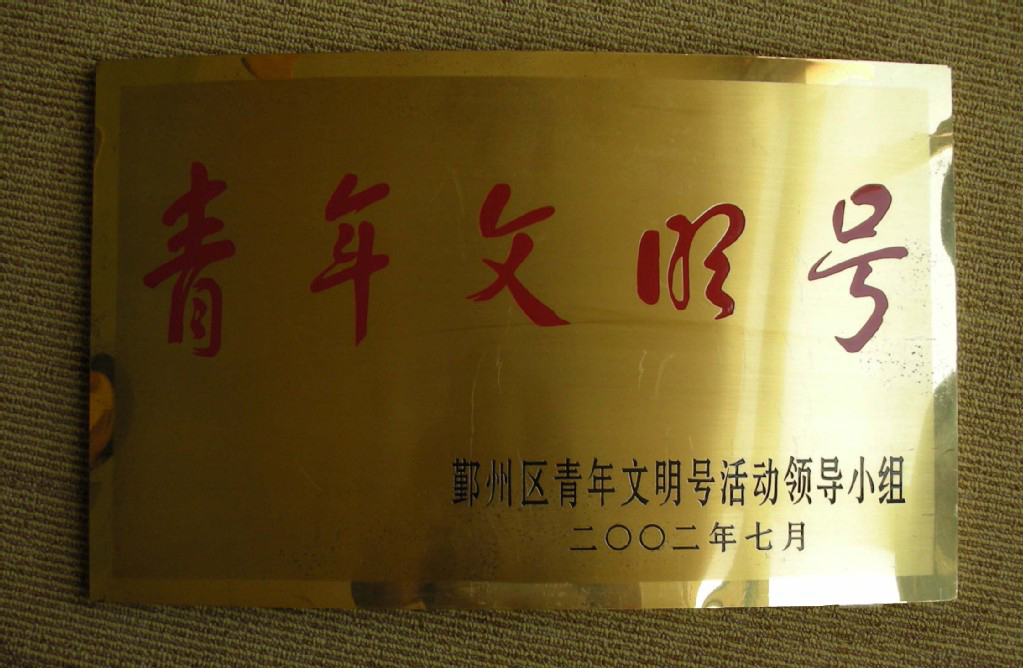 青年文明号
鄞州区青年文明号活动领导小组
二〇〇二年七月